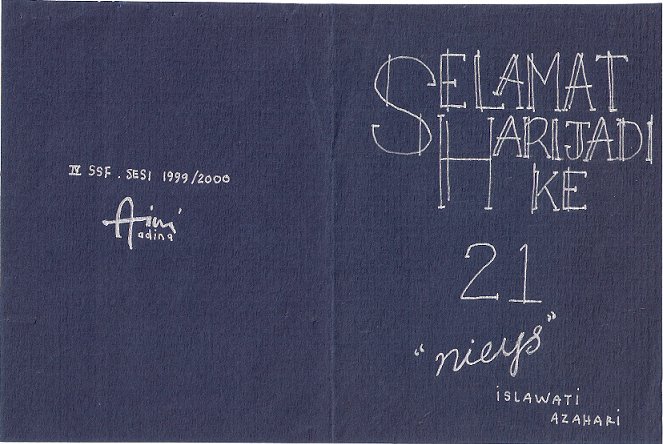 IV SSF. SESI 1999/2000
Aini
adina
SELAMAT
HARIJADI
KE
21
"nieys"
ISLAWATI
AZAHARI